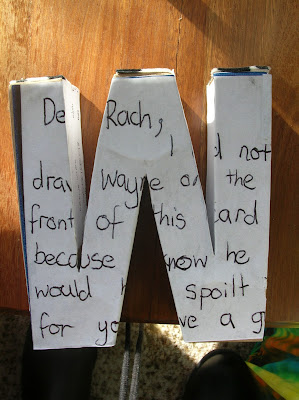 De Rach,
I d not
dra Wayne o the
front of this ard
because now he
would spoilt
for yo ve a g